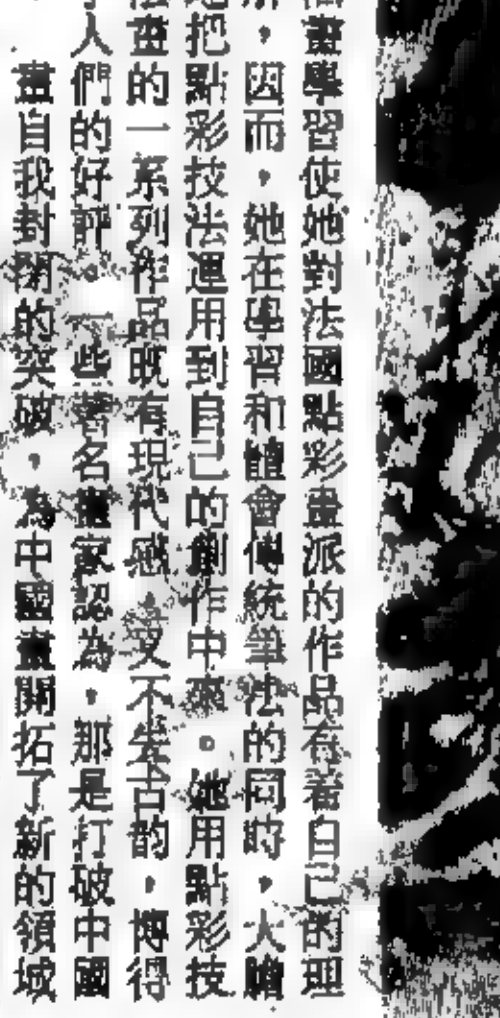 畫學習使她對法國點彩畫派的作品有著自己的理
，因而，她在學習和體會傳統筆法的同時，大膽
把點彩技法運用到自己的創作中來。她用點彩技
畫的一系列作品既有現代感，又不失古韵，博得
人們的好評，一些著名畫家認為，那是打破中國
畫自我封閉的突破，為中國畫開拓了新的領域